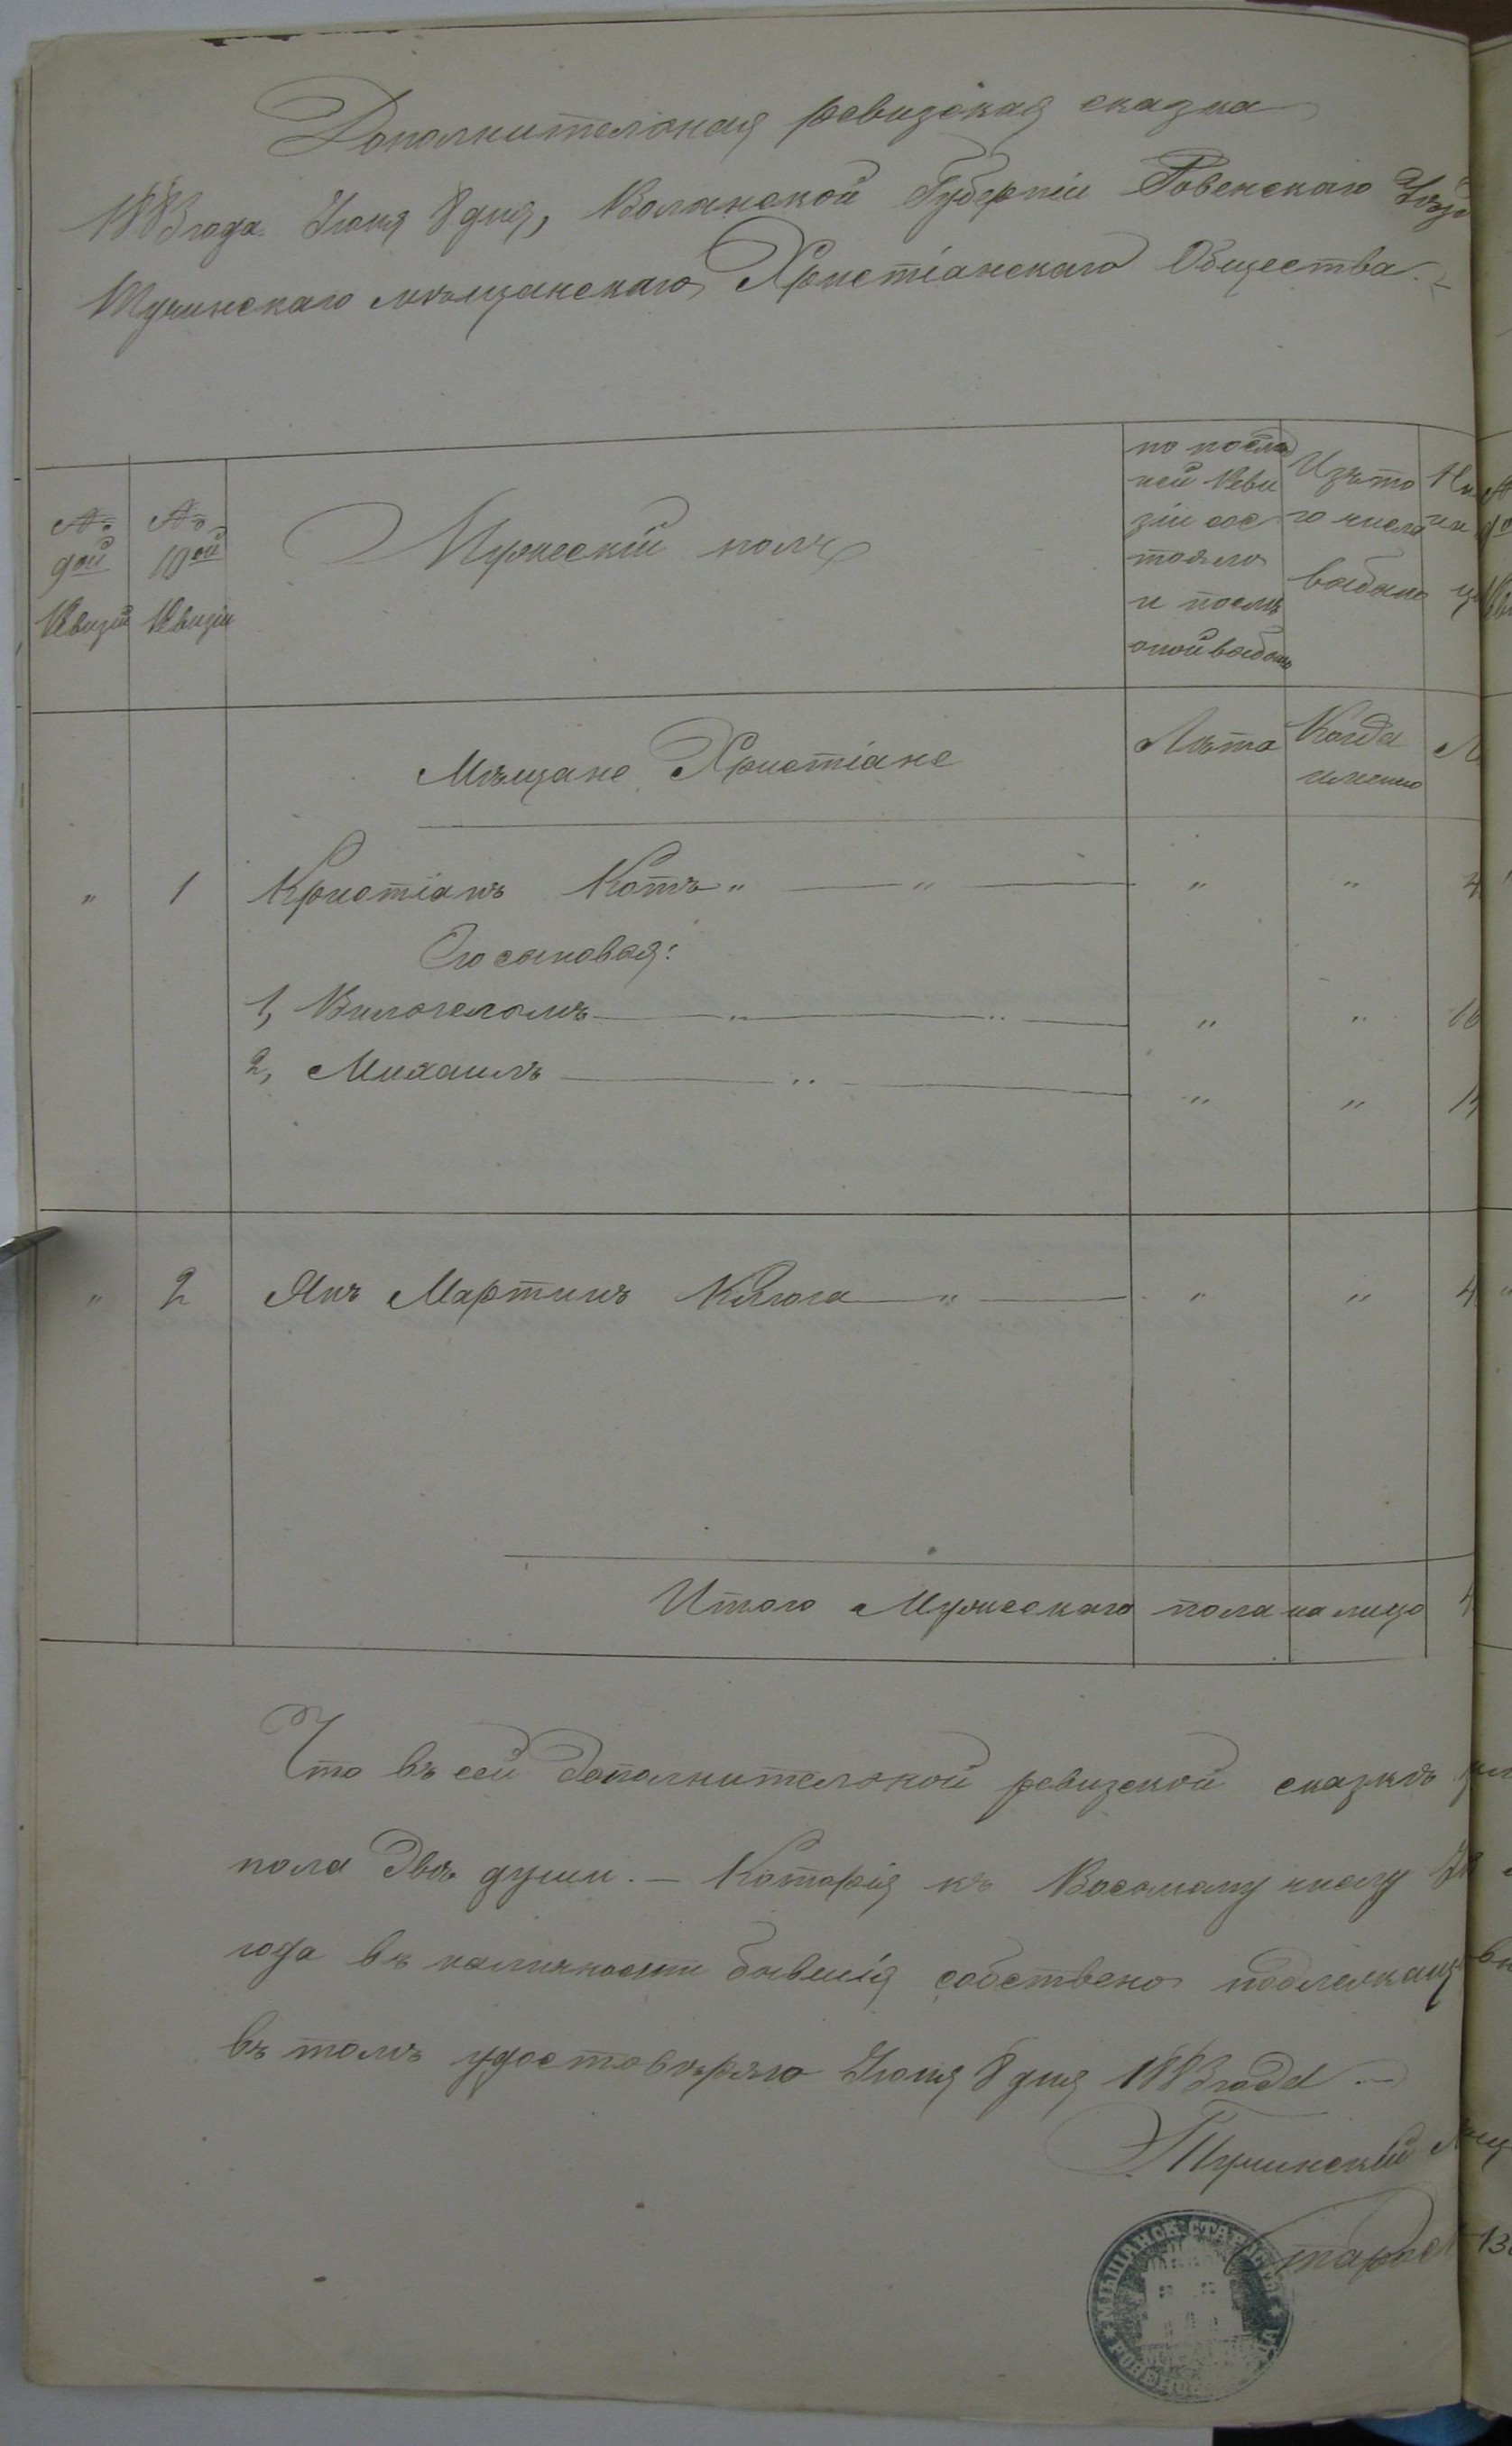 Дополнительная ревизская сказка
1883 года Июня 8 дня, Волынской Губерніи Ровенскаго
Тучинскаго мѣщанскаго Христіанскаго Общества
№ 9ой Ревизіи
№ 10ой Ревизіи
Мужескій полъ
по послѣд
ней Реви
зіи сос
тояло
и послѣ
оной выбыло
Изъ то
го числа
выбыло
Мѣщане Христіане
Лѣта
Когда
именно
" 1 Кристіанъ Котъ " " " "
Его сыновья:
1, Вильгельмъ " " " "
2, Михаилъ " " "
" 2 Янъ Мартинъ " " "
Итого Мужескаго пола на лицо
Что въ сей дополнительной ревизской сказкѣ
пола двѣ души. — Которія къ Восьмому числу
года въ наличности бывшія собствено
въ томъ удостовѣряю Июня 8 дня 1883 года
Тучинскій
Старос
МѢЩАНСК СТАРОСТЫ